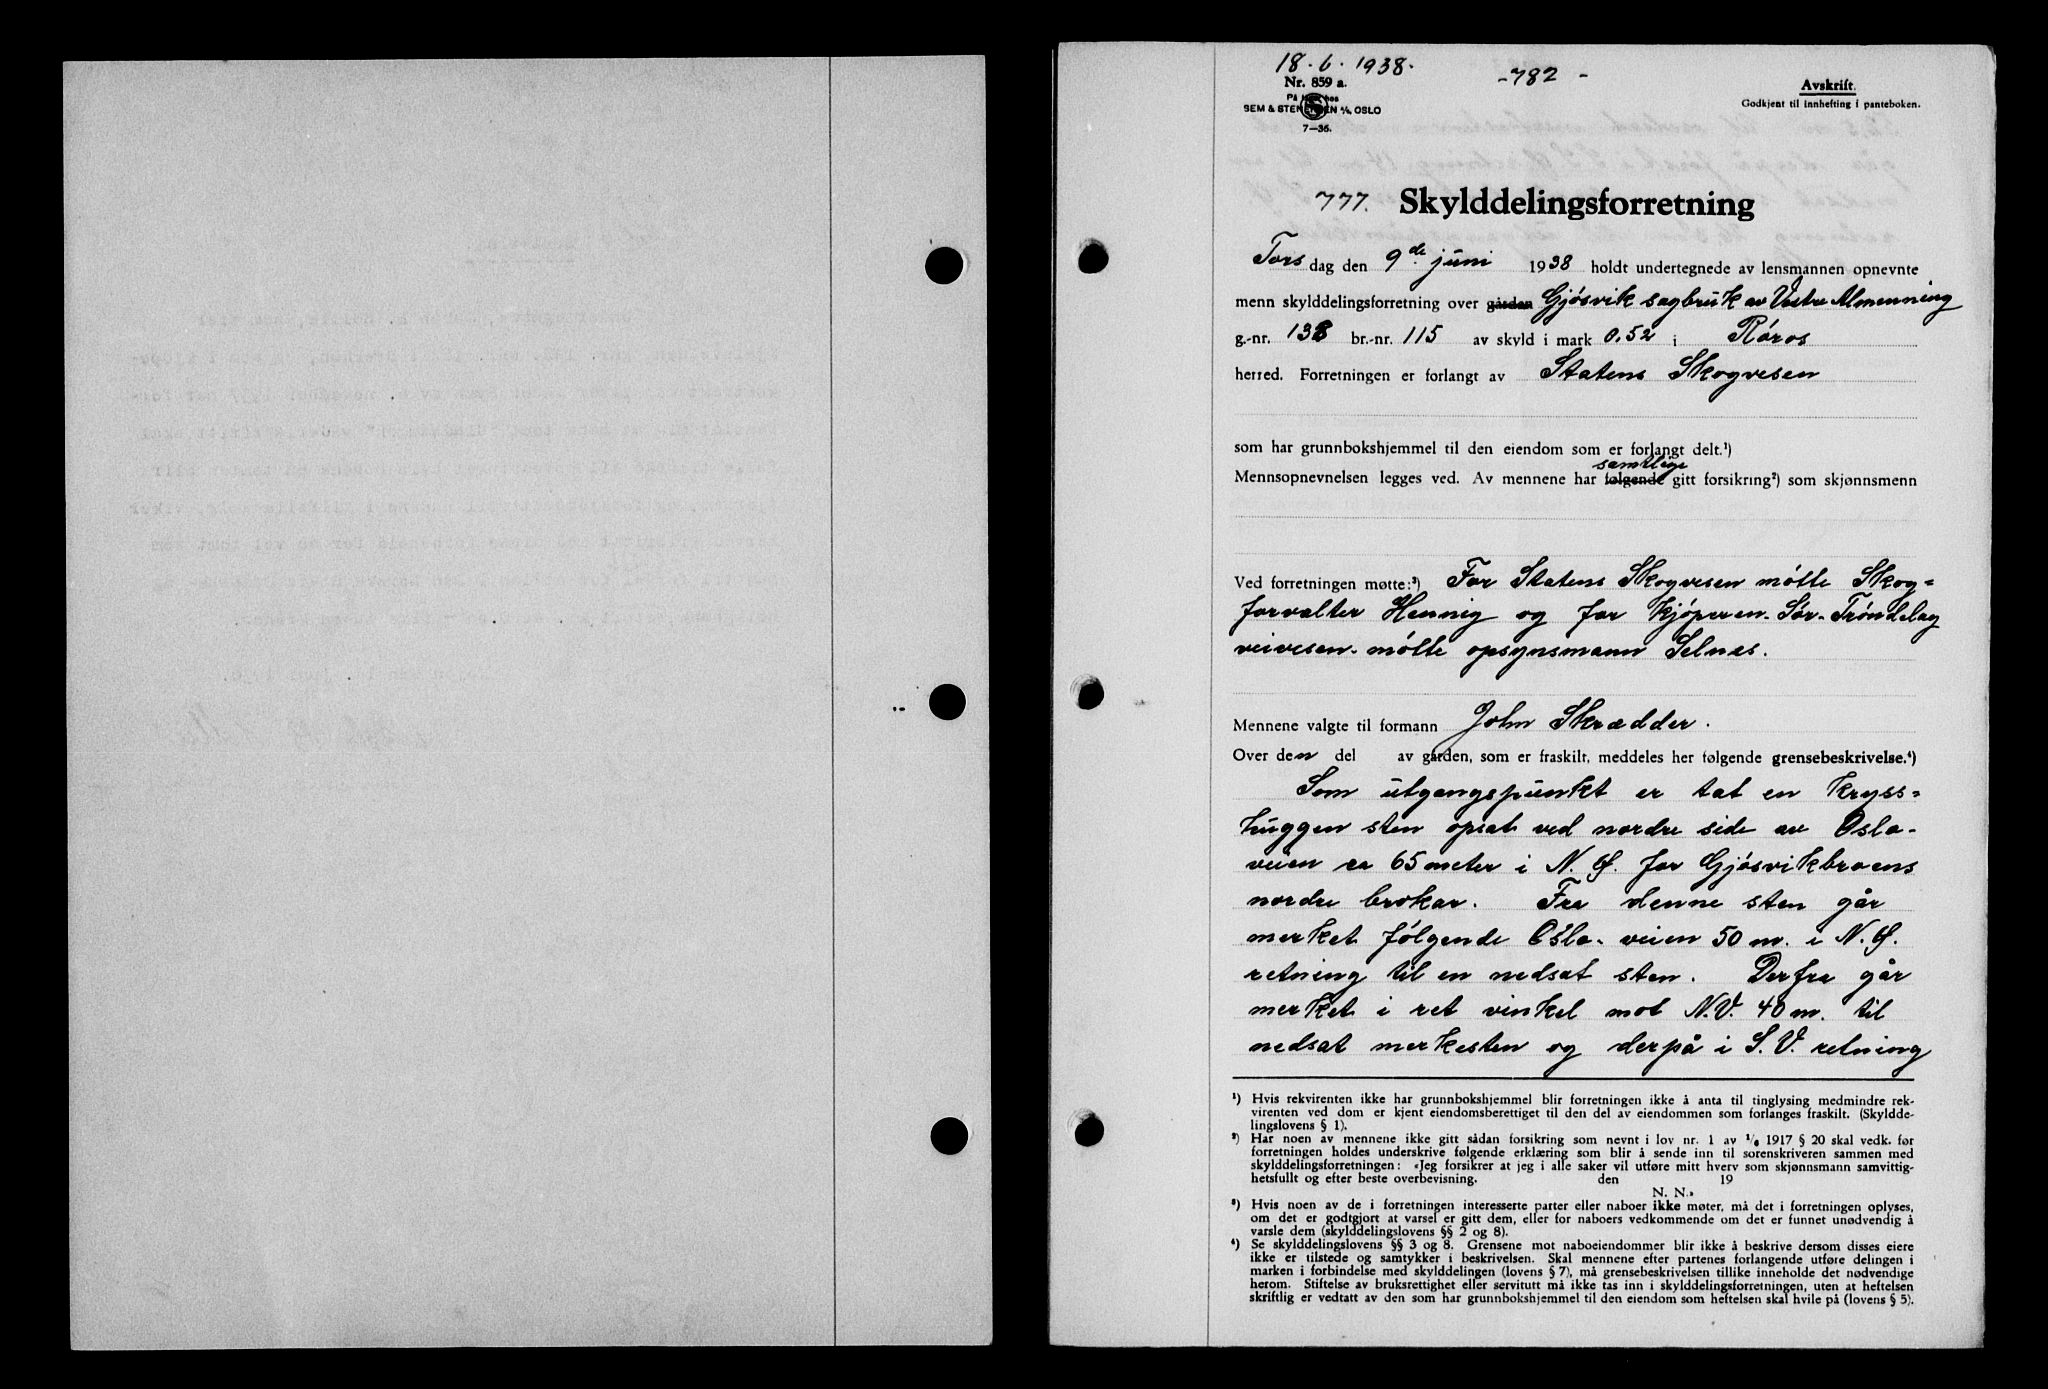 18.6.1938.
-782-
Nr. 859 a.
SEM & STENERSEN A/S, OSLO
7—36.
Avskrift.
Godkjent til innhefting i panteboken.
777. Skylddelingsforretning
Torsdag den 9de juni 1938 holdt undertegnede av lensmannen opnevnte
menn skylddelingsforretning over gården Gjøsvik sagbruk av Vestre Almenning
g.-nr. 138 br.-nr. 115 av skyld i mark 0.52 i Røros
herred. Forretningen er forlangt av Statens Skogvesen
som har grunnbokshjemmel til den eiendom som er forlangt delt.¹)
samtlige
Mennsopnevnelsen legges ved. Av mennene har følgende gitt forsikring²) som skjønnsmenn
Ved forretningen møtte:³) For Statens Skogvesen møtte Skog=
forvalter Hennig og for kjøperen - Sør-Trøndelag
veivesen - møtte opsynsmann Selnes.
Mennene valgte til formann John Skrædder.
Over den del av gården, som er fraskilt, meddeles her følgende grensebeskrivelse.⁴)
Som utgangspunkt er tat en kryss=
huggen sten opsat ved nordre side av Oslo-
veien ca 65 meter i N.Ø. for Gjøsvikbroens
nordre brokar. Fra denne sten går
merket følgende Oslo-veien 50 m. i N.Ø.
retning til en nedsat sten. Derfra går
merket i ret vinkel mot N.V. 40 m. til
nedsat merkesten og derpå i S.V. retning
¹) Hvis rekvirenten ikke har grunnbokshjemmel blir forretningen ikke å anta til tinglysing medmindre rek-
virenten ved dom er kjent eiendomsberettiget til den del av eiendommen som forlanges fraskilt. (Skyldde-
lingslovens § 1).
²) Har noen av mennene ikke gitt sådan forsikring som nevnt i lov nr. 1 av 1/6 1917 § 20 skal vedk. før
forretningen holdes underskrive følgende erklæring som blir å sende inn til sorenskriveren sammen med
skylddelingsforretningen: «Jeg forsikrer at jeg i alle saker vil utføre mitt hverv som skjønnsmann samvittig-
hetsfullt og efter beste overbevisning. den 19
N. N.»
³) Hvis noen av de i forretningen interesserte parter eller naboer ikke møter, må det i forretningen oplyses,
om det er godtgjort at varsel er gitt dem, eller for naboers vedkommende om det er funnet unødvendig å
varsle dem (skylddelingslovens §§ 2 og 8).
⁴) Se skylddelingslovens §§ 3 og 8. Grensene mot naboeiendommer blir ikke å beskrive dersom disses eiere
ikke er tilstede og samtykker i beskrivelsen. Skal mennene efter partenes forlangende utføre delingen i
marken i forbindelse med skylddelingen (lovens § 7), må grensebeskrivelsen tillike inneholde det nødvendige
herom. Stiftelse av bruksrettighet eller servitutt må ikke tas inn i skylddelingsforretningen, uten at heftelsen
skriftlig er vedtatt av den som har grunnbokshjemmel til den eiendom som heftelsen skal hvile på (lovens § 5).